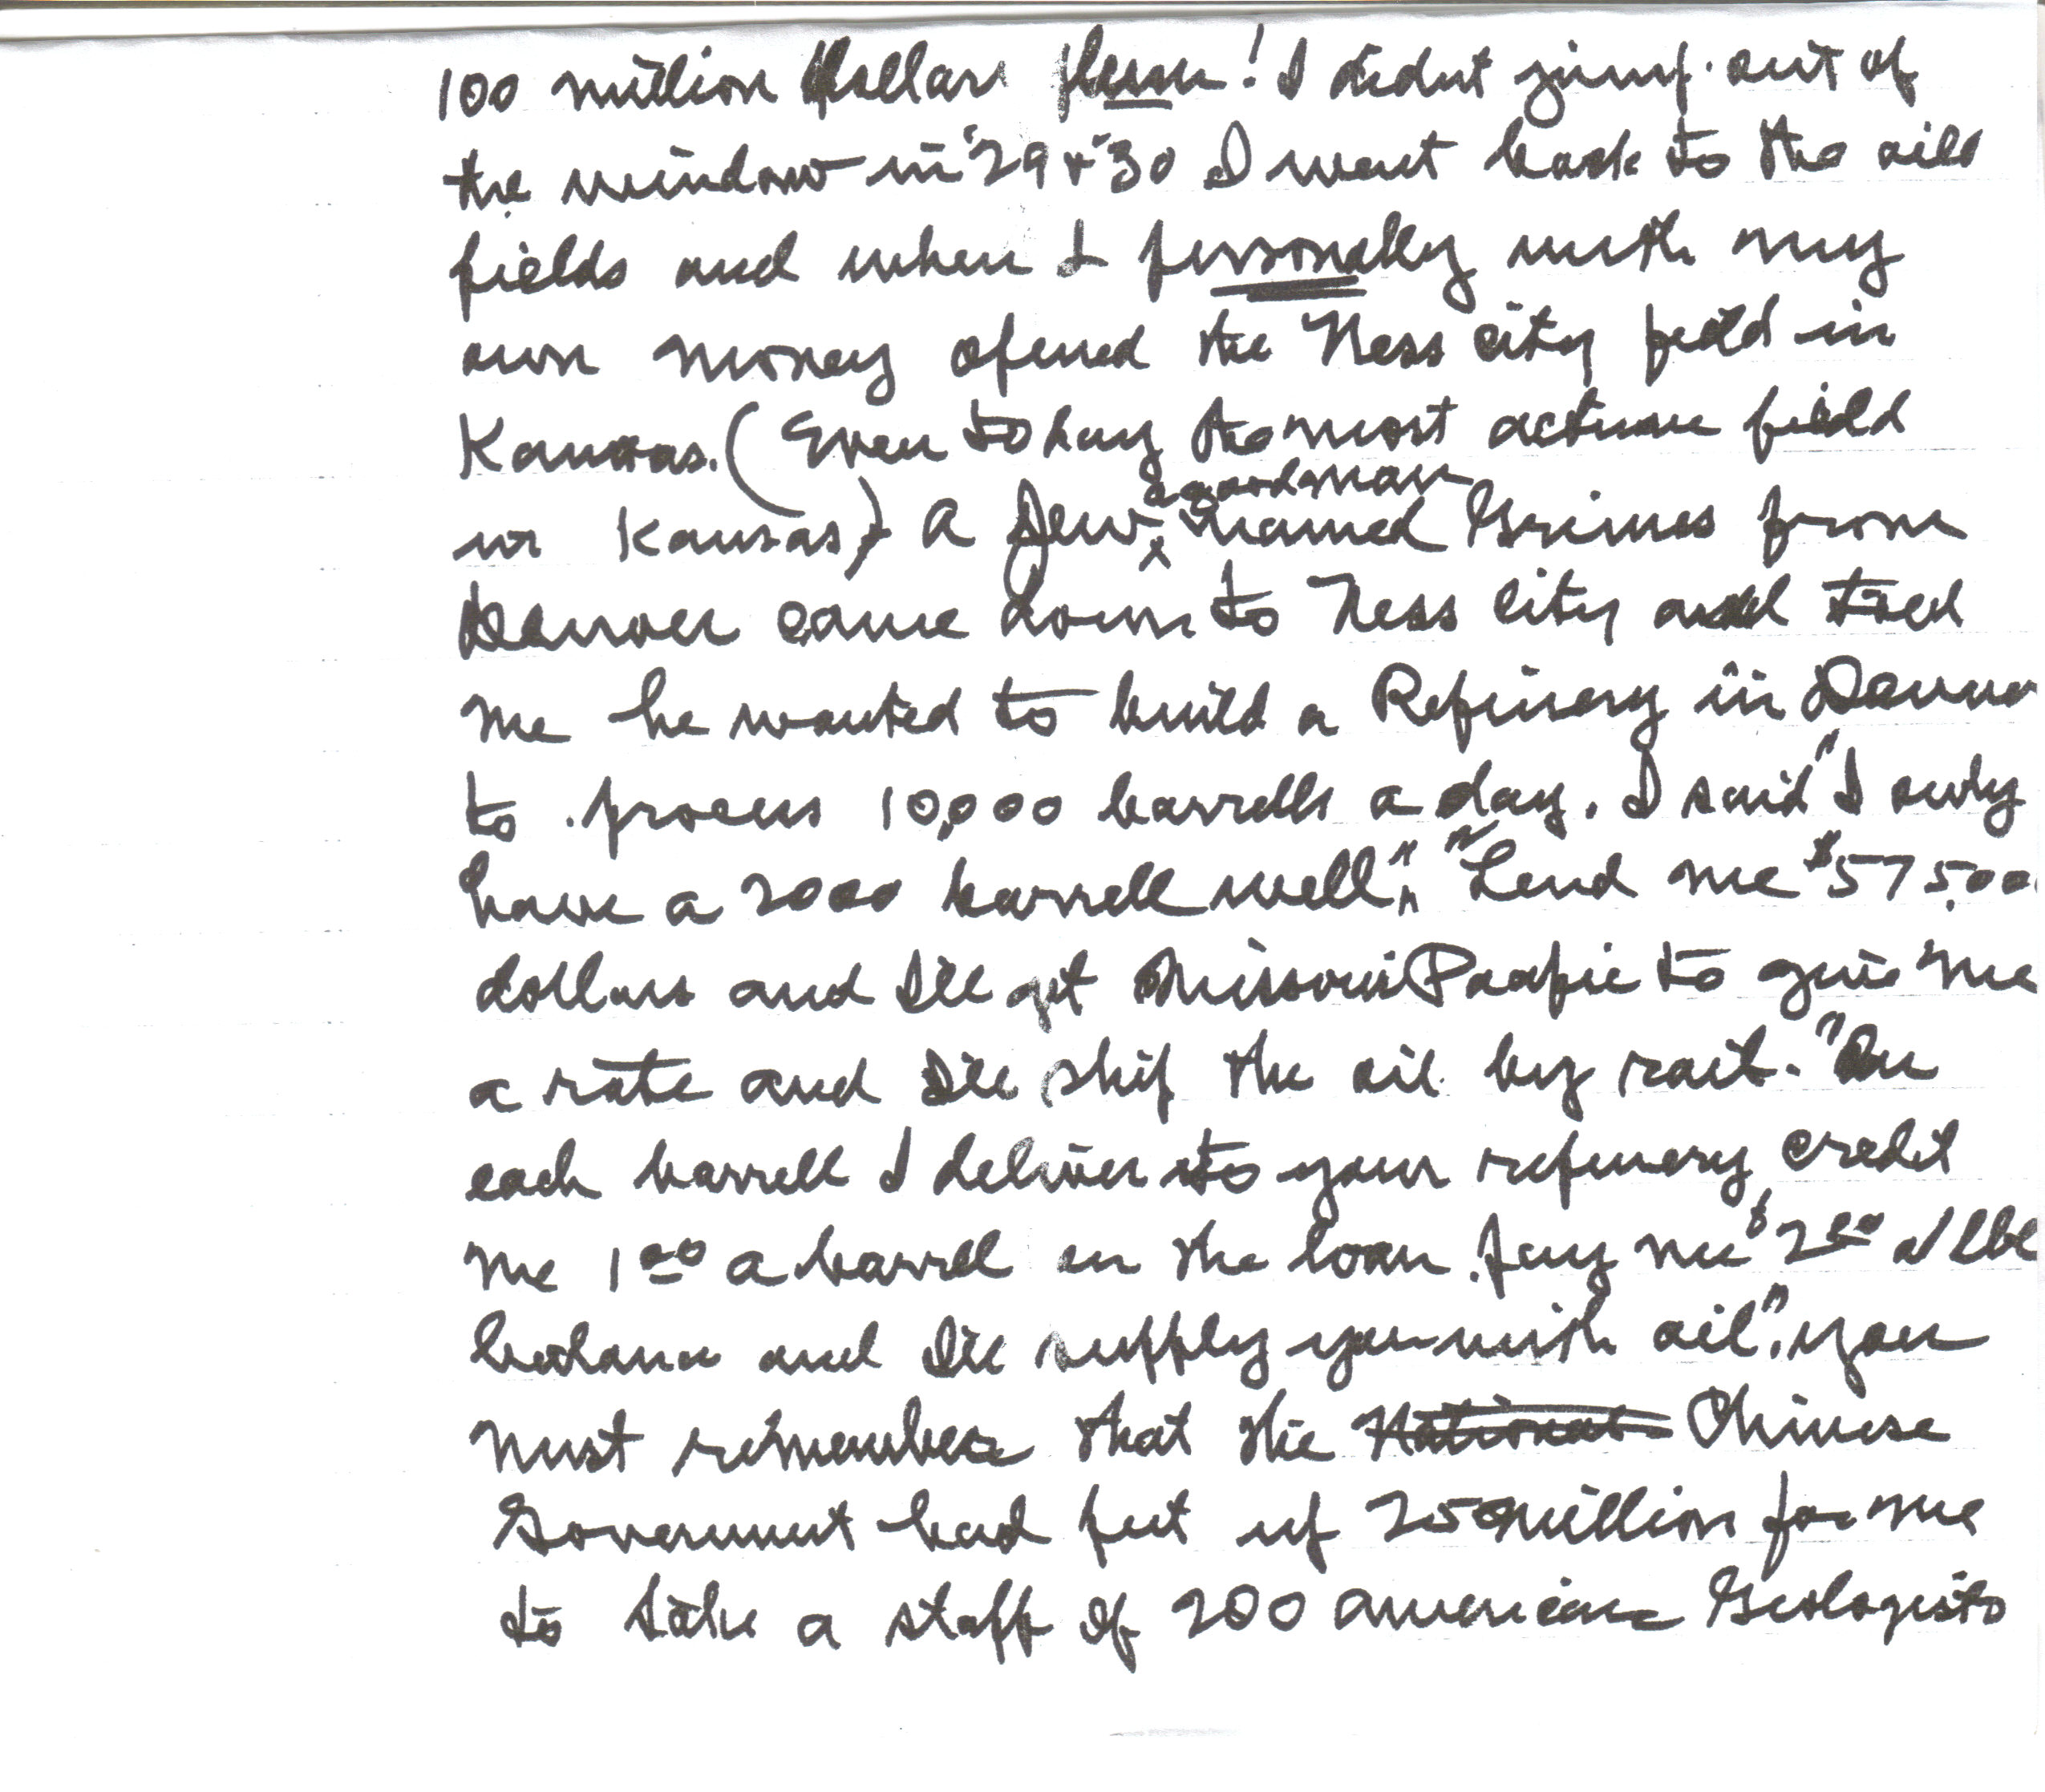 100 million Dollars plum! I didnt jump out of
the window in '29 + '30 I went back to the oil
fields and when I personally with my
own money opened the Ness City field in
Kansas. (Even today the most active field
in Kansas) A Jew, a good man named Grimes from
Denver came down to Ness City and told
me he wanted to build a Refinery in Denver
to process 10,000 barrells a day. I said "I only
have a 2000 barrell well". "Lend me $57,500
dollars and Ill get Missouri Pacific to give me
a rate and Ill ship the oil by rail. "On
each barrell I deliver to your refinery credit
me 1 00 a barrell on the loan. pay me $2 00 a bbl
balance and Ill supply you with oil". you
must remember that the National Chinese
Government had put up 250 million for me
to take a staff of 200 american Geologists